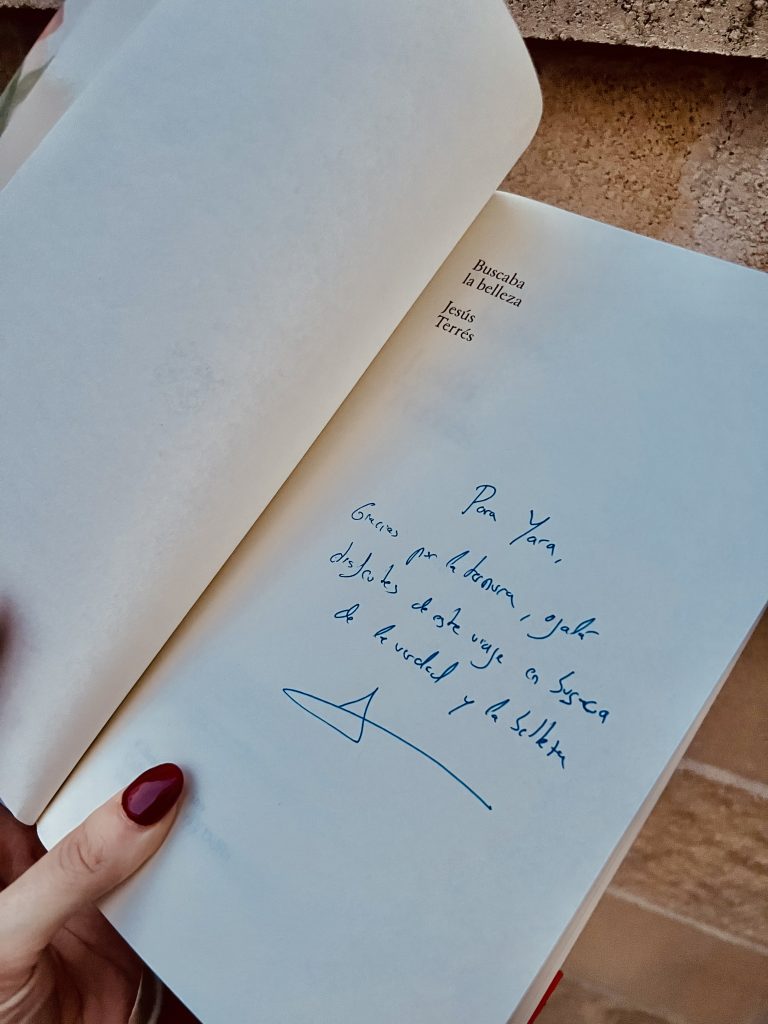 Buscaba
la belleza
Jesús
Terrés
Para Yara,
Gracias por la ternura, ojalá
disfrutes de este viaje en busca
de la verdad y la belleza